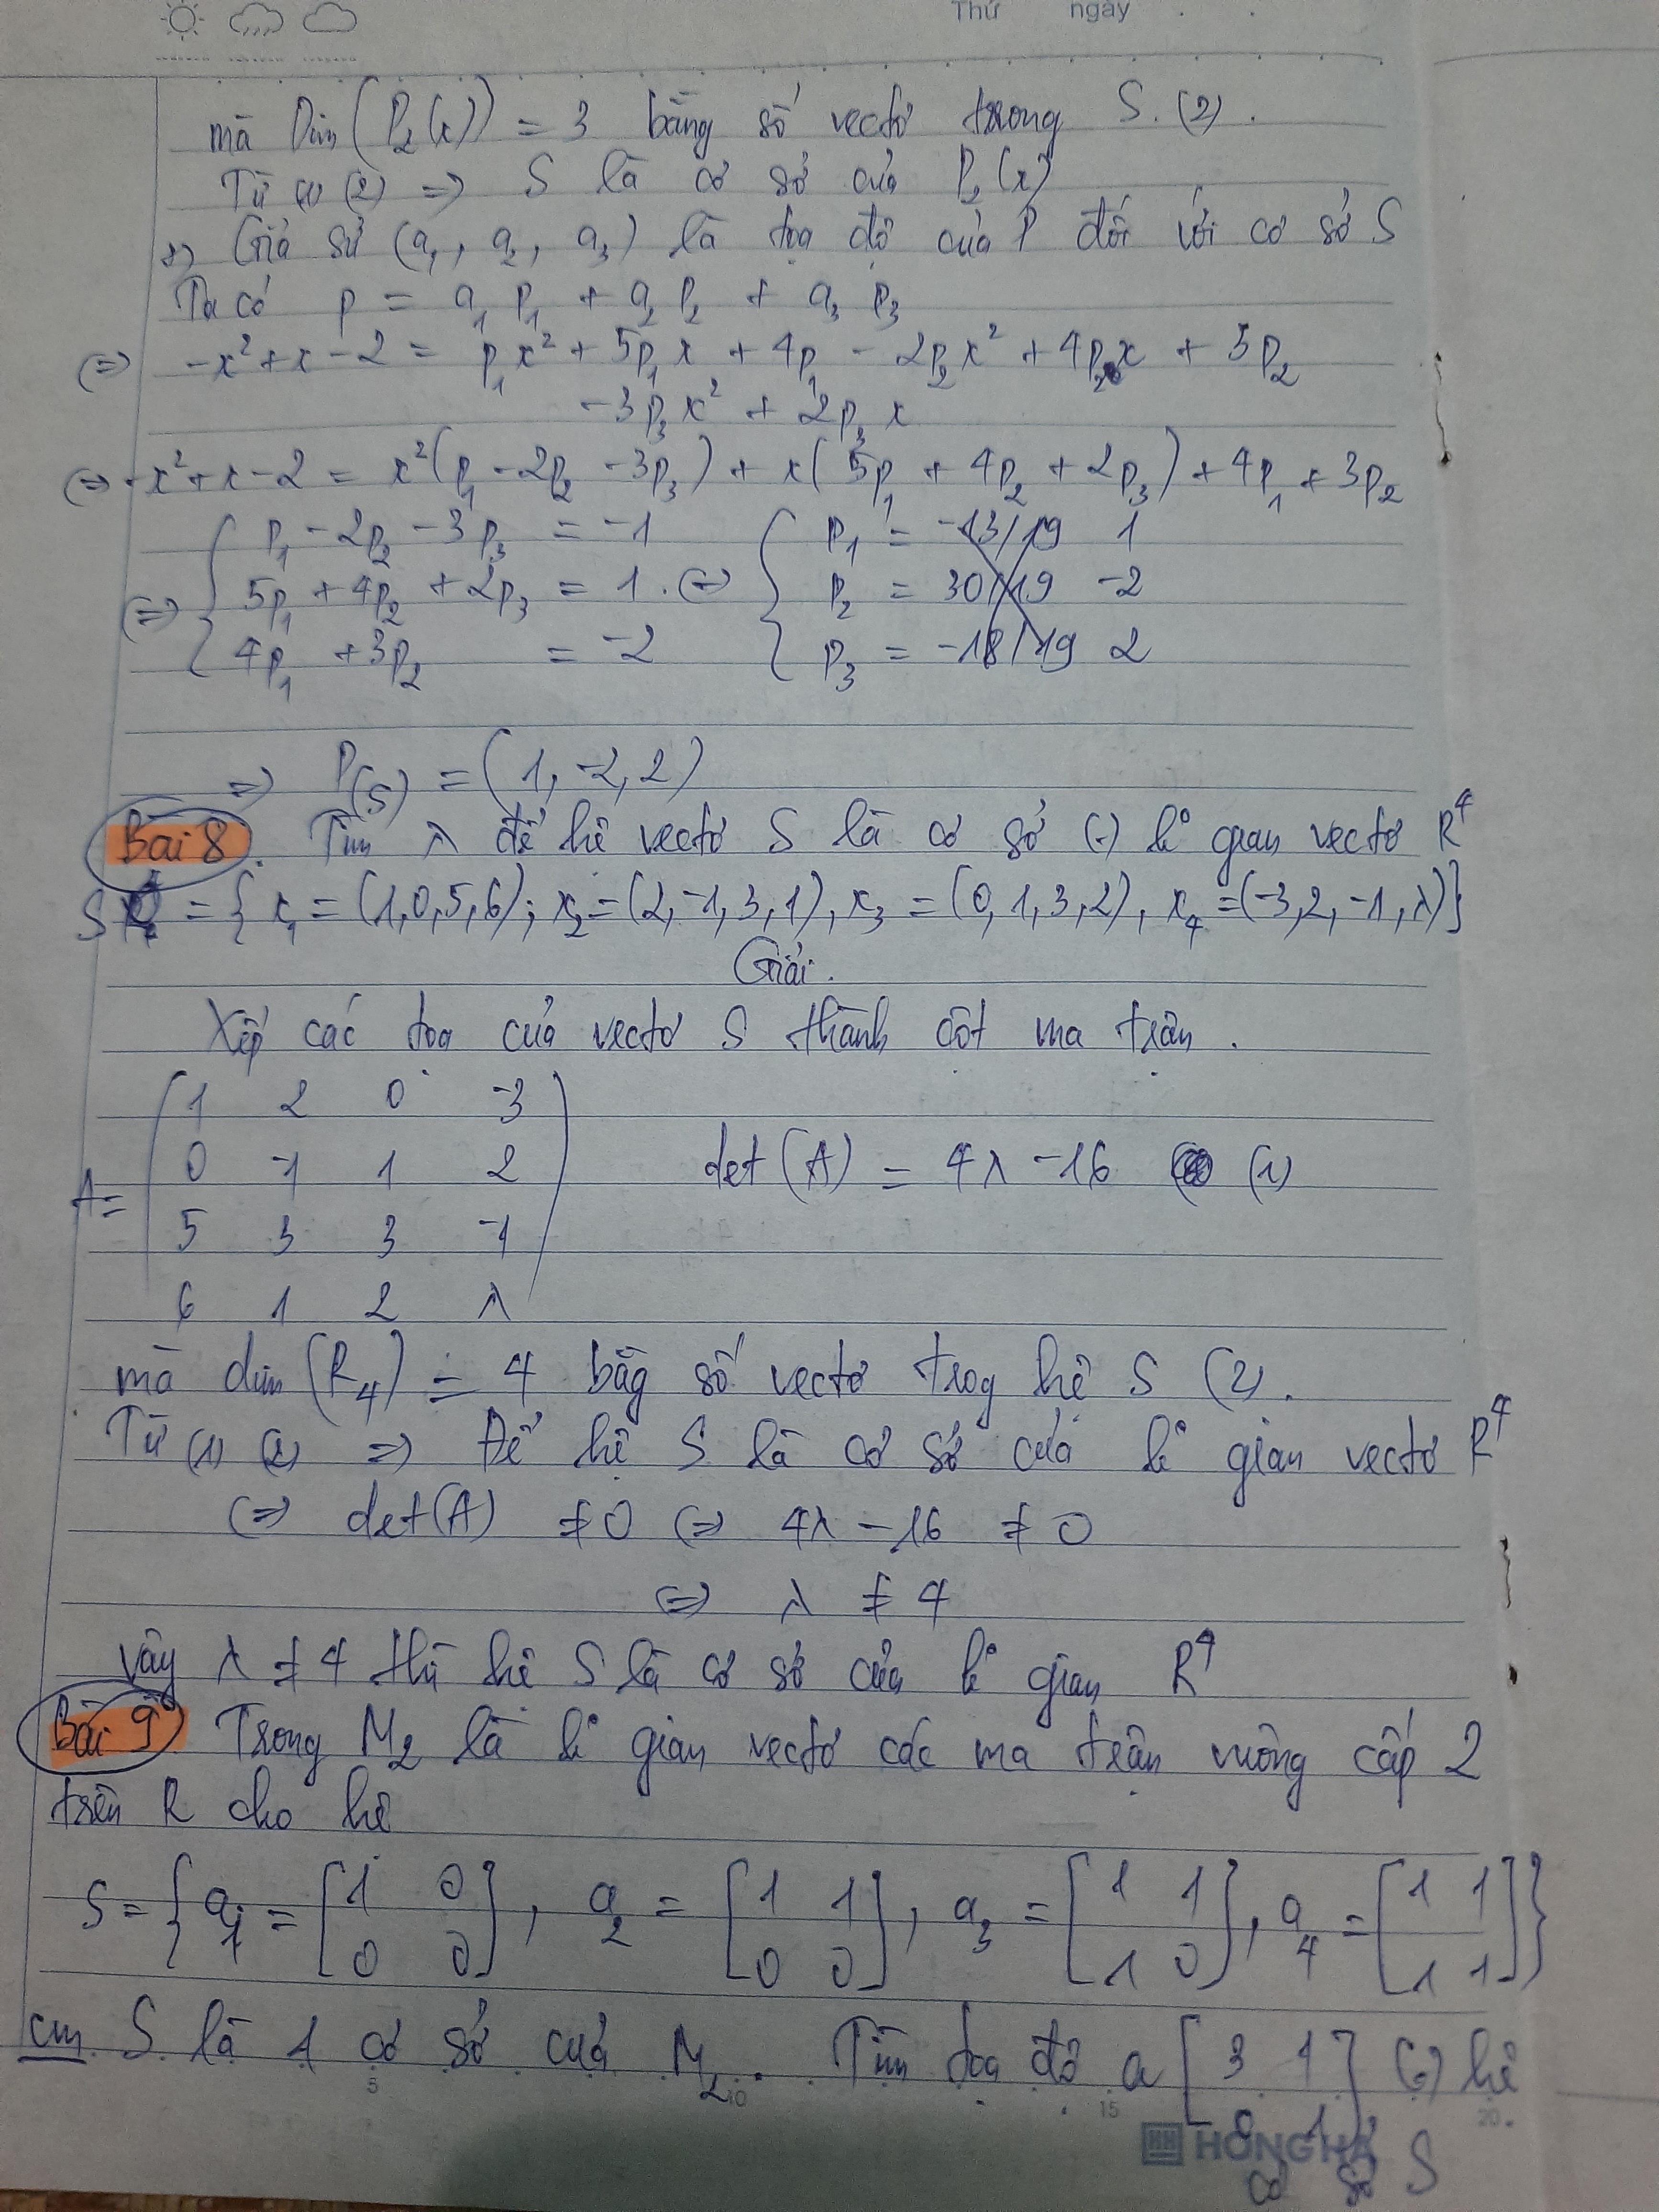 Thứ ngày . .
mà Dim(P₂(x)) = 3 bằng số vectơ trong S. (2).
Từ (1) (2) => S là cơ sở của P₂(x)
*) Giả sử (a₁, a₂, a₃) là tọa độ của P đối với cơ sở S
Ta có p = a₁p₁ + a₂p₂ + a₃p₃
(=> -x² + x - 2 = p₁x² + 5p₁x + 4p₁ - 2p₂x² + 4p₂x + 3p₂
-3p₃x² + 2p₃x
(=> -x² + x - 2 = x²(p₁ - 2p₂ - 3p₃) + x(5p₁ + 4p₂ + 2p₃) + 4p₁ + 3p₂
{ p₁ - 2p₂ - 3p₃ = -1 { p₁ = -13/19 1
(=> 5p₁ + 4p₂ + 2p₃ = 1. (=> p₂ = 30/19 -2
4p₁ + 3p₂ = -2 p₃ = -18/19 2
=> P(S) = (1, -2, 2)
Bài 8. Tìm λ để hệ vectơ S là cơ sở (-) k° gian vectơ R⁴
S = { x₁ = (1,0,5,6); x₂ = (2,-1,3,1), x₃ = (0,1,3,2), x₄ = (-3,2,-1,λ)}
Giải.
Xếp các tọa của vectơ S thành cột ma trận.
1 2 0 -3
0 -1 1 2 det(A) = 4λ - 16 (1)
A =
5 3 3 -1
6 1 2 λ
mà dim(R₄) = 4 bằg số vectơ trog hệ S (2).
Từ (1) (2) => Để hệ S là cơ sở của k° gian vectơ R⁴
(=> det(A) ≠ 0 (=> 4λ - 16 ≠ 0
(=> λ ≠ 4
vậy λ ≠ 4 thì hệ S là cơ sở của k° gian R⁴
Bài 9 Trong M₂ là k° gian vectơ các ma trận vuông cấp 2
trên R cho hệ
S = { a₁ = [1 0 0 0], a₂ = [1 1 0 0], a₃ = [1 1 1 0], a₄ = [1 1 1 1] }
cm S là 1 cơ sở của M₂. Tìm tọa độ a [3 1 1] (-) hệ
cơ sở S
5 10 15 20
HONG HA